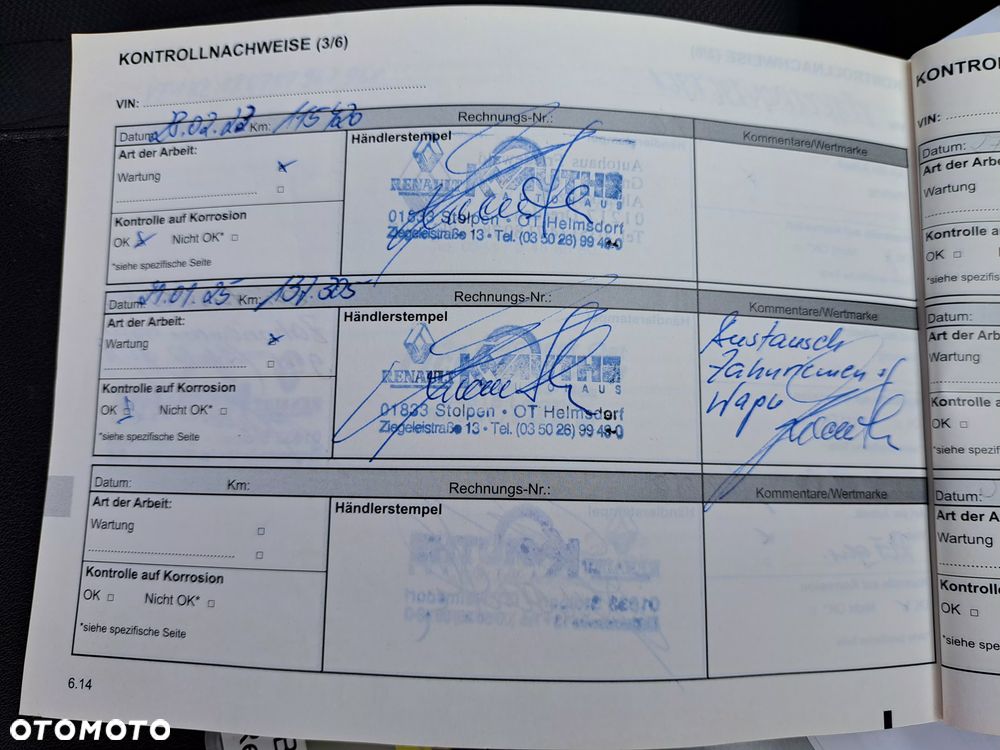 KONTROLLNACHWEISE (3/6)
VIN:
Datum: 28.02.23 Km: 115120 Rechnungs-Nr.:
Art der Arbeit:
Wartung
Kontrolle auf Korrosion
OK Nicht OK*
*siehe spezifische Seite
Händlerstempel
RENAULT KAUTHE
AUTOHAUS
01833 Stolpen • OT Helmsdorf
Ziegeleistraße 13 • Tel. (03 50 26) 99 49-0
Kommentare/Wertmarke
Datum: 21.01.25 Km: 137.305 Rechnungs-Nr.:
Art der Arbeit:
Wartung
Kontrolle auf Korrosion
OK Nicht OK*
*siehe spezifische Seite
Händlerstempel
RENAULT KAUTHE
AUTOHAUS
01833 Stolpen • OT Helmsdorf
Ziegeleistraße 13 • Tel. (03 50 26) 99 49-0
Kommentare/Wertmarke
Austausch
Zahnriemen +
Wapu
Datum: Km: Rechnungs-Nr.:
Art der Arbeit:
Wartung
Kontrolle auf Korrosion
OK Nicht OK*
*siehe spezifische Seite
Händlerstempel
Kommentare/Wertmarke
6.14
KONTRO
VIN:
Datum:
Art der Arbe
Wartung
Kontrolle
OK
*siehe spezifis
Datum:
Art der A
Wartung
Kontrol
OK
*siehe spezi
Datum:
Art der A
Wartung
Kontroll
OK
*siehe spe
OTOMOTO